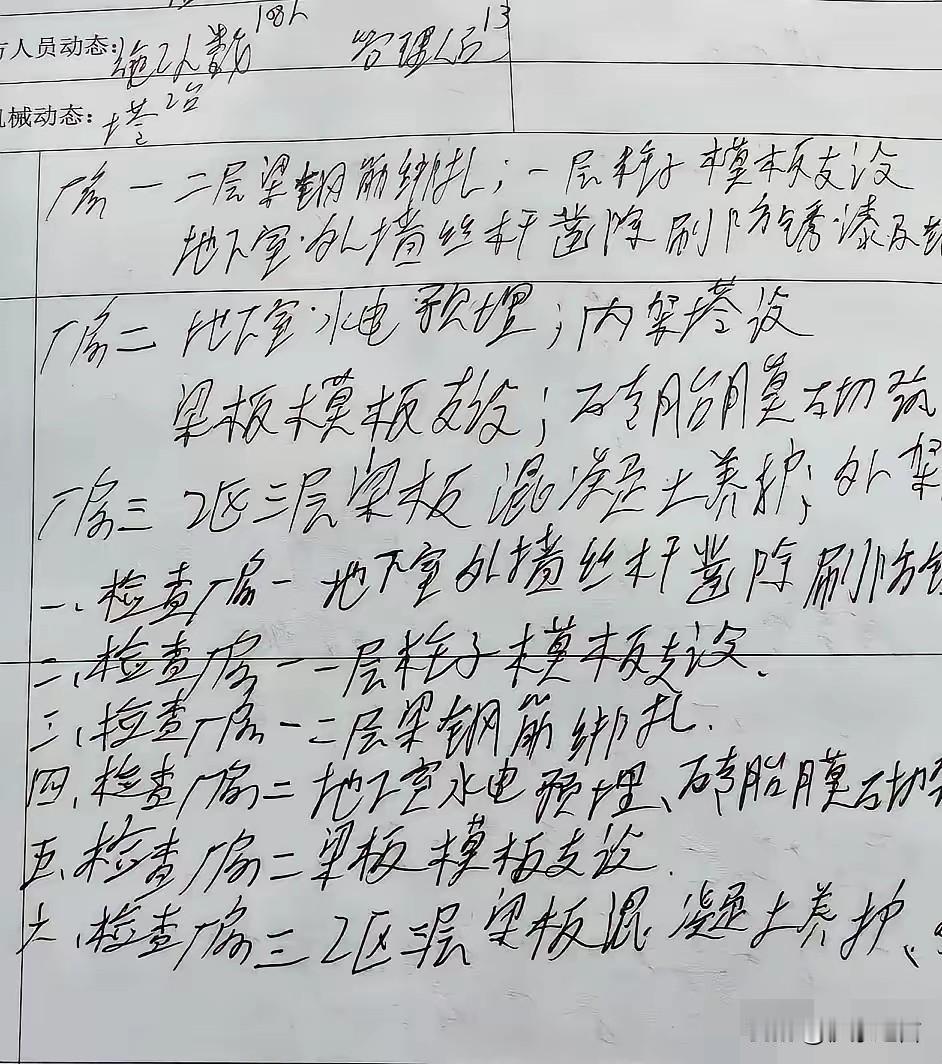 方人员动态:施工人数108人 管理人员13
机械动态:塔2台
厂房一 二层梁钢筋绑扎;一层柱子模板支设
地下室外墙丝杆凿除刷防锈漆及
厂房二 地下室水电预埋;内架搭设
梁板模板支设;砖胎膜砌筑
厂房三 2区三层梁板混凝土养护;外架
一、检查厂房一地下室外墙丝杆凿除刷防锈
二、检查厂房一一层柱子模板支设.
三、检查厂房一二层梁钢筋绑扎.
四、检查厂房二地下室水电预埋、砖胎膜砌筑
五、检查厂房二梁板模板支设.
六、检查厂房三2区三层梁板混凝土养护、